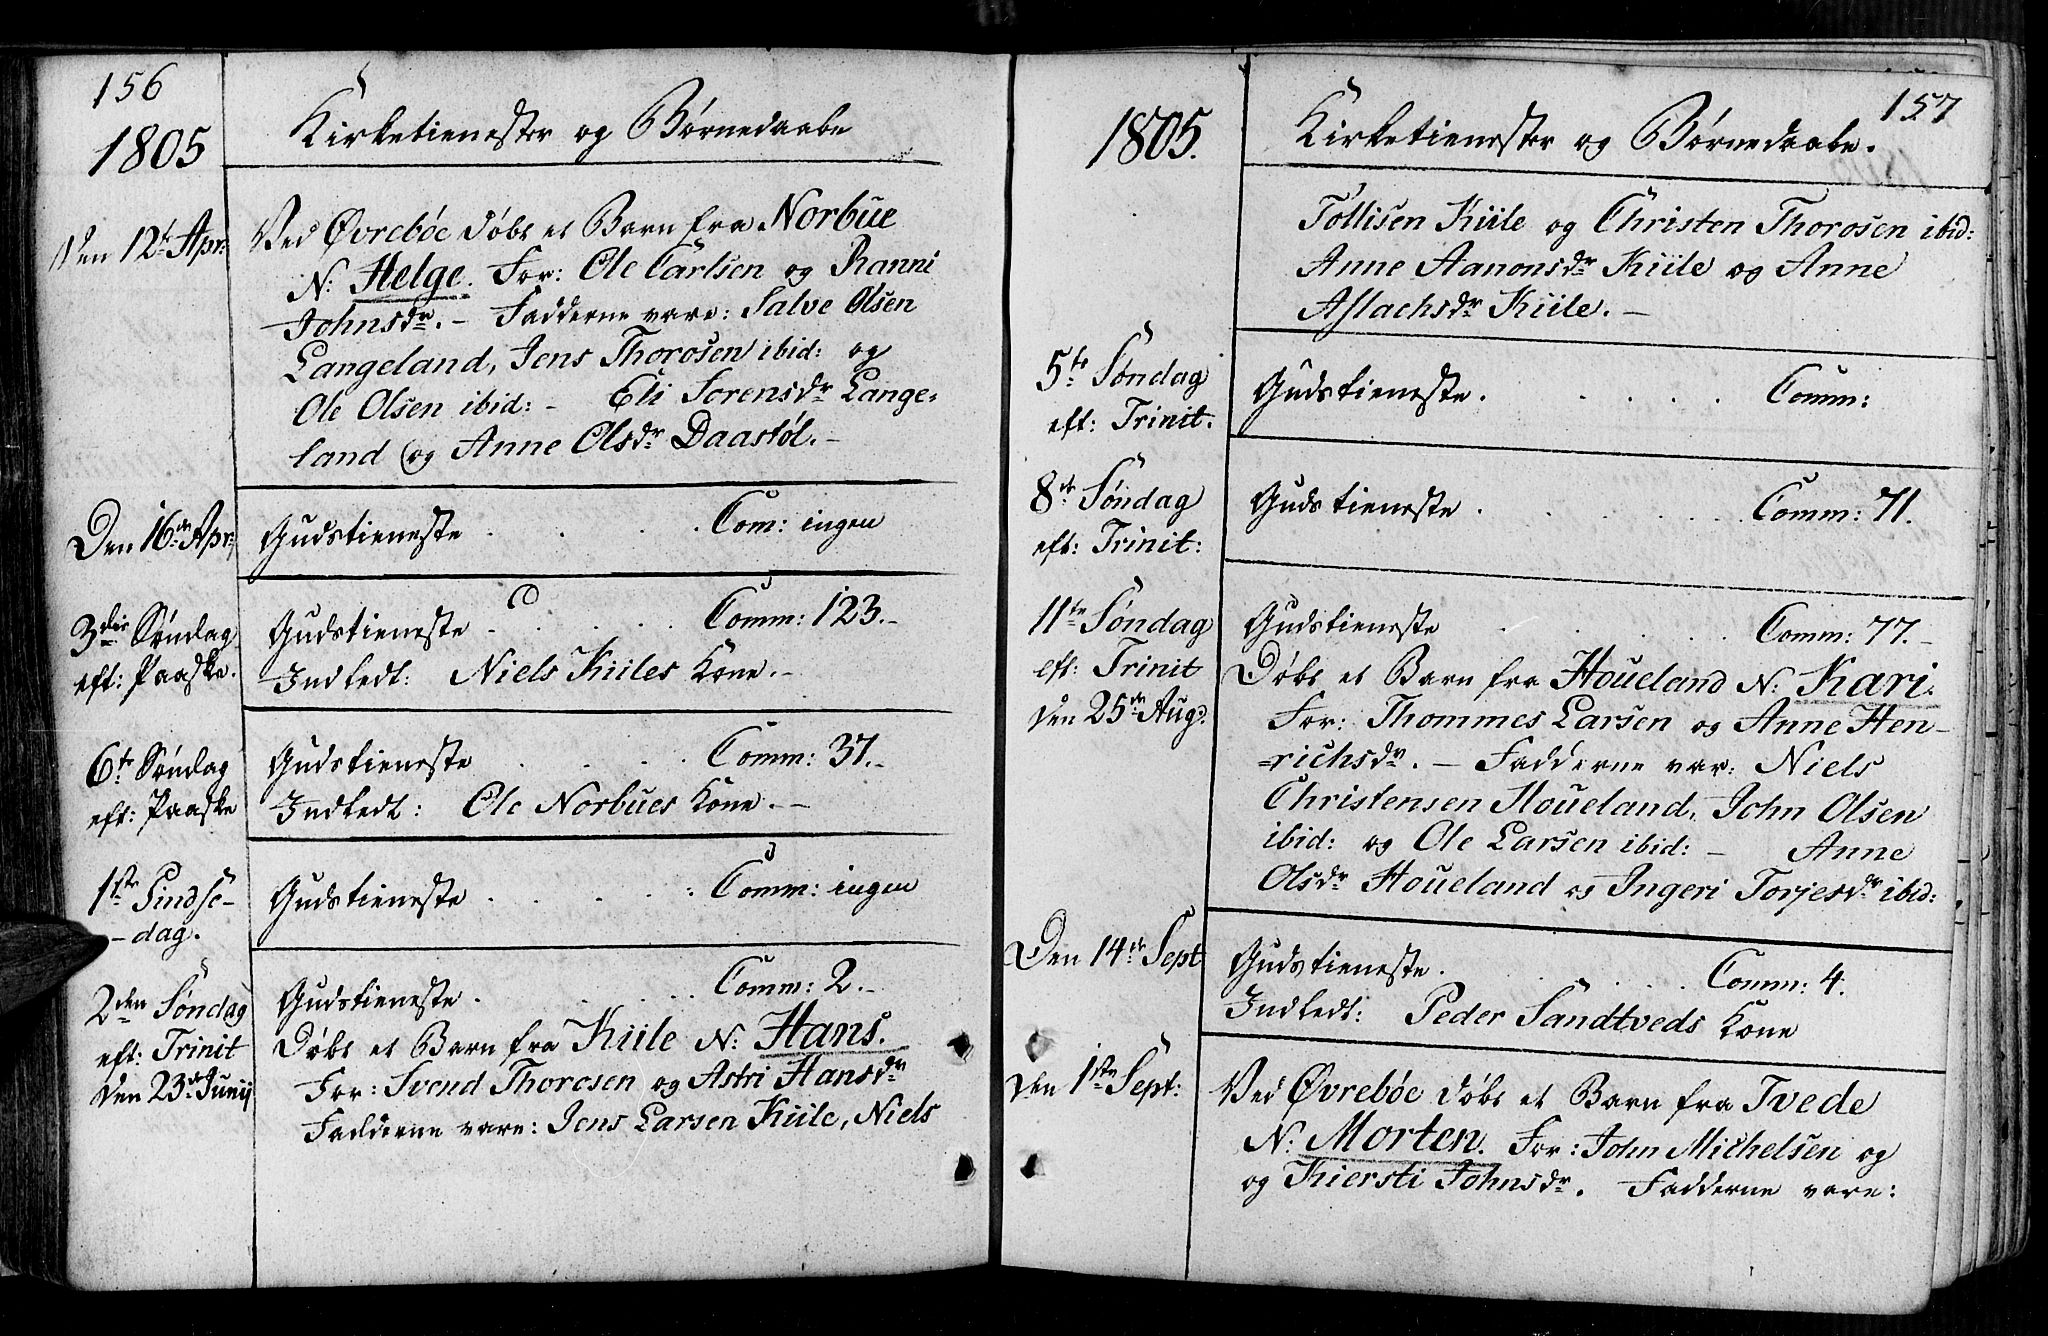 156
1805
Kirketienester og Børnedaabe
Den 12t Apr:
Ved Øvrebøe døbt et Barn fra Norbue
N: Helge. For: Ole Carlsen og Ranni
Johnsdr. – Fadderne vare: Salve Olsen
Langeland, Jens Thorosen ibid: og
Ole Olsen ibid: – Eli Sorensdr Lange:
land og Anne Olsdr Daastøl. –
Den 16de Apr:
Gudstieneste . . . . Com: ingen
3die Søndag
eft: Paaske.
Gudstieneste . . . . Comm: 123. –
Indledt: Niels Kiiles Kone. –
6te Søndag
eft: Paaske
Gudstieneste . . . . Comm: 37. –
Indledt: Ole Norbues Kone. –
1ste Pindse–
– dag.
Gudstieneste . . . . : Comm: ingen
2den Søndag
eft: Trinit
Den 23de Junij
Gudstieneste . . . . Comm: 2. –
Døbt et Barn fra Kiile N: Hans.
For: Svend Thorosen og Astri Hansdr
Fadderne vare: Jens Larsen Kiile, Niels
157
1805.
Kirketienester og Børnedaabe.
Tollisen Kiile og Christen Thorosen ibid:
Anne Aanonsdr Kiile og Anne
Aslachsdr Kiile. –
5te Søndag
eft: Trinit.
Gudstieneste . . . . . Comm:
8de Søndag
eft: Trinit:
Gudstieneste . . . . . Comm: 71.
11te Søndag
eft: Trinit
Den 25de Aug:
Gudstieneste . . . . Comm: 77. –
Døbt et Barn fra Houeland N: Kari.
For: Thommes Larsen og Anne Hen–
=richsdr. – Fadderne var: Niels
Christensen Houeland, John Olsen
ibid: og Ole Larsen ibid: – Anne
Olsdr Houeland og Ingeri Torjesdr ibid:
Den 14de Sept
Gudstieneste . . . . Comm: 4.
Indledt: Peder Sandtveds Kone
Den 1ste Sept:
Ved Øvrebøe døbt et Barn fra Tvede
N: Morten. For: John Michelsen og
og Kiersti Johnsdr. Fadderne vare: